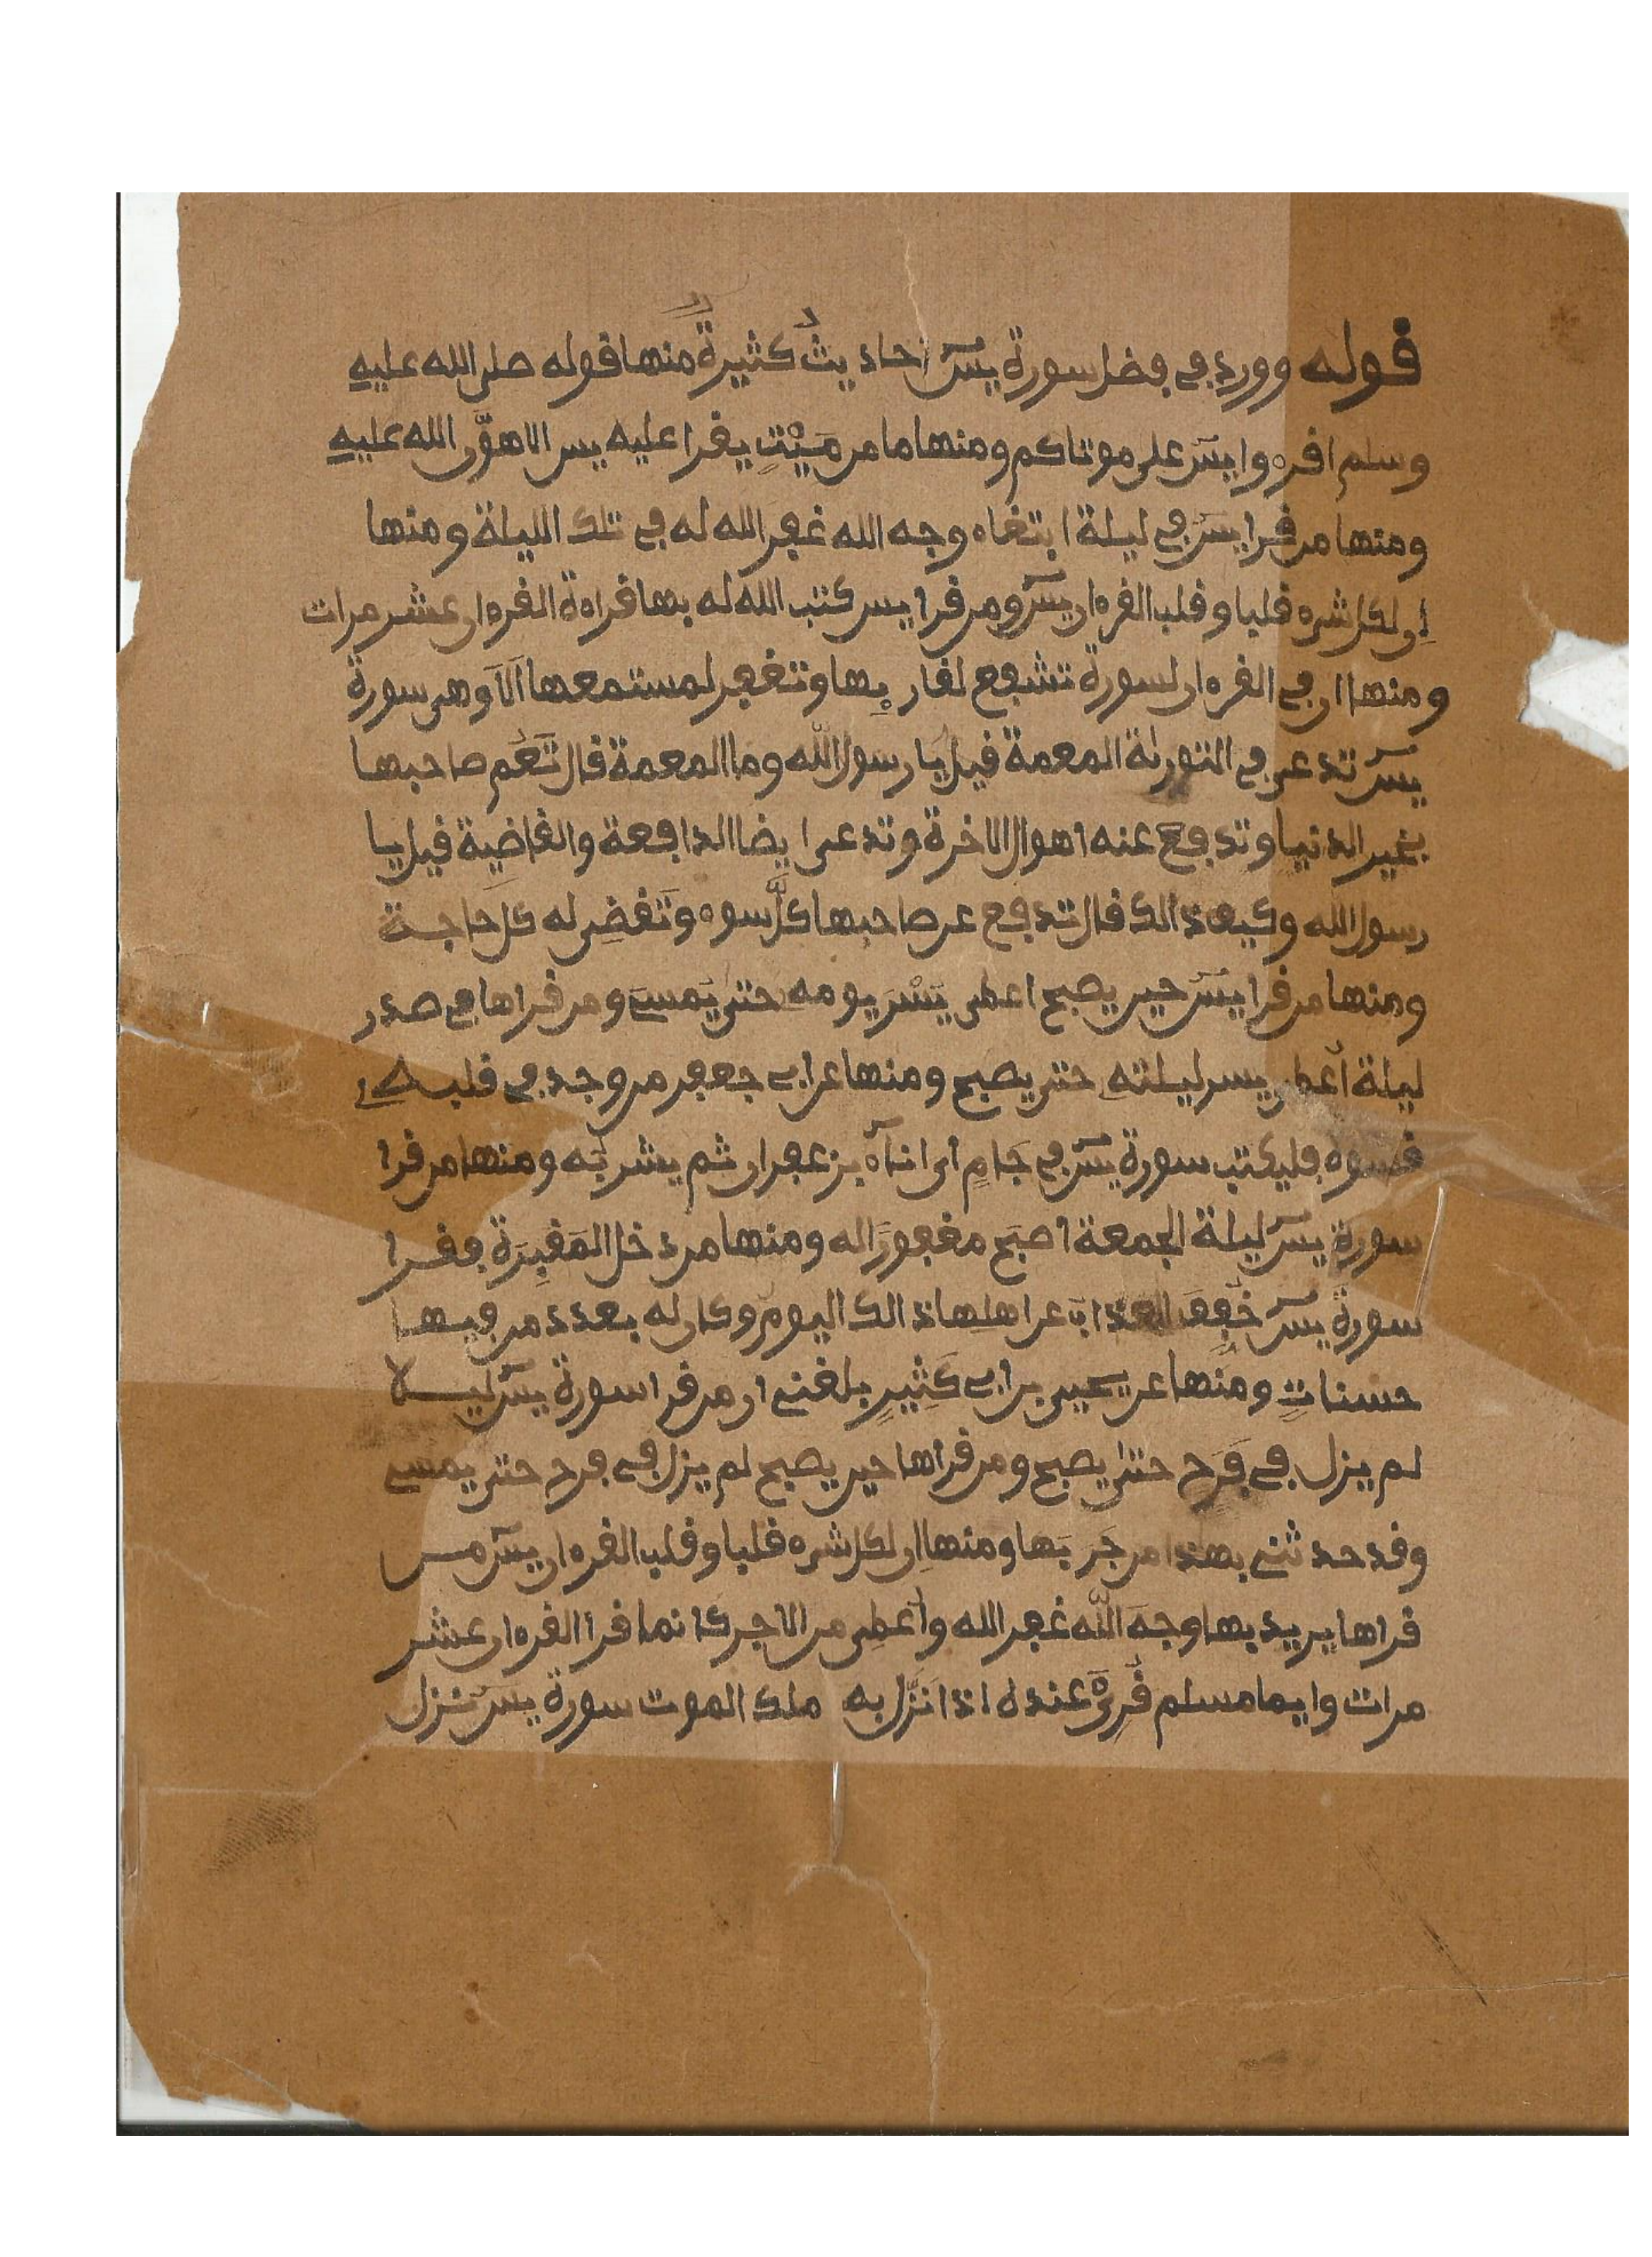 قوله وورد في فضل سورة يسٓ احاديثُ كثيرةٌ منها قوله صلى الله عليه
وسلم اقرءوا يسٓ على موتاكم ومنها ما من مَيّتٍ يقرا عليه يس الا هوّن الله عليه
ومنها من قرا يسٓ في ليلة ابتغاء وجه الله غفر الله له في تلك الليلة ومنها
إن لكل شيء قلبا وقلب القرءان يسٓ ومن قرا يس كتب الله له بها قراءة القرءان عشر مرات
ومنها ان في القرءان لسورة تشفع لقارىِٕها وتغفر لمستمعها اَلَا وهي سورة
يسٓ تدعى في التورىٰة المعمة قيل يا رسول الله وما المعمة قال تَعُم صاحبها
بخير الدنيا وتدفع عنه اهوال الاخرة وتدعى ايضا الدافعة والقاضية قيل يا
رسول الله وكيف ذالك قال تدفع عن صاحبها كلَّ سوء وتَقضِى له كل حَاجة
ومنها من قرا يسٓ حين يصبح اعطى يُسْرَ يومه حتى يَمسى ومن قراها في صدر
ليلة أُعطى يسر ليلته حتى يصبح ومنها عن ابى جعفر من وجد في قلبه
قسوة فليكتب سورة يسٓ في جَامٍ أى اناءٓ بزعفران ثم يشربُه ومنها من قرا
سورة يسٓ ليلة الجمعة اصبَح مغفورًا له ومنها من دخل المَقبِرَة فقرا
سورةَ يسٓ خُفِفَ العذابُ عن اهلها ذالك اليوم وكان له بعدد من فيها
حسناتٍ ومنها عن يحيى بن ابى كَثِيرٍ بلغنى ان من قرا سورة يسٓ ليلا
لم يزل فى فَرَح حتى يصبح ومن قراها حين يصبح لم يزل فى فرح حتى يمسى
وقد حدثنى بهذا من جَرَبَها ومنها ان لكل شيء قلبا وقلب القرءان يسٓ من
قراها يريد بها وجهَ اللّٰه غفر الله وأُعطِى من الاجر كانما قرأ القرءان عشر
مرات وايما مسلم قُرِئَ عنده اذا نَزَل به ملك الموت سورة يسٓ نزل